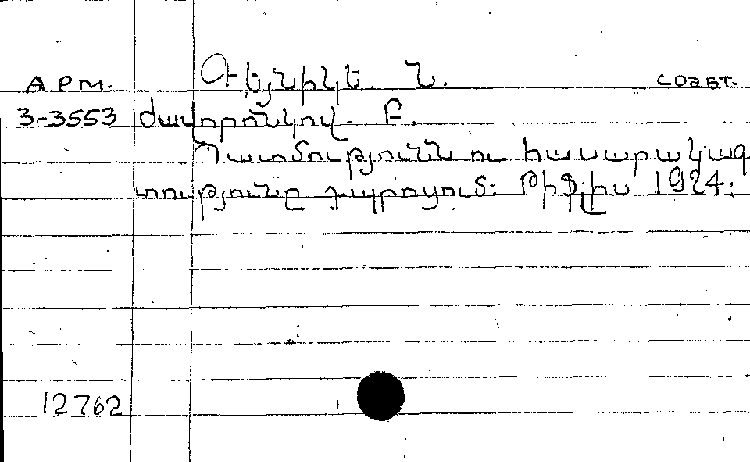 АРМ. Գեյնիկե Ն. совет.
3-3553 Ժավորոնկով. Բ.
Պատմությունն ու հասարակագ
տությունը դպրոցում: Թիֆլիս 1924:
12762